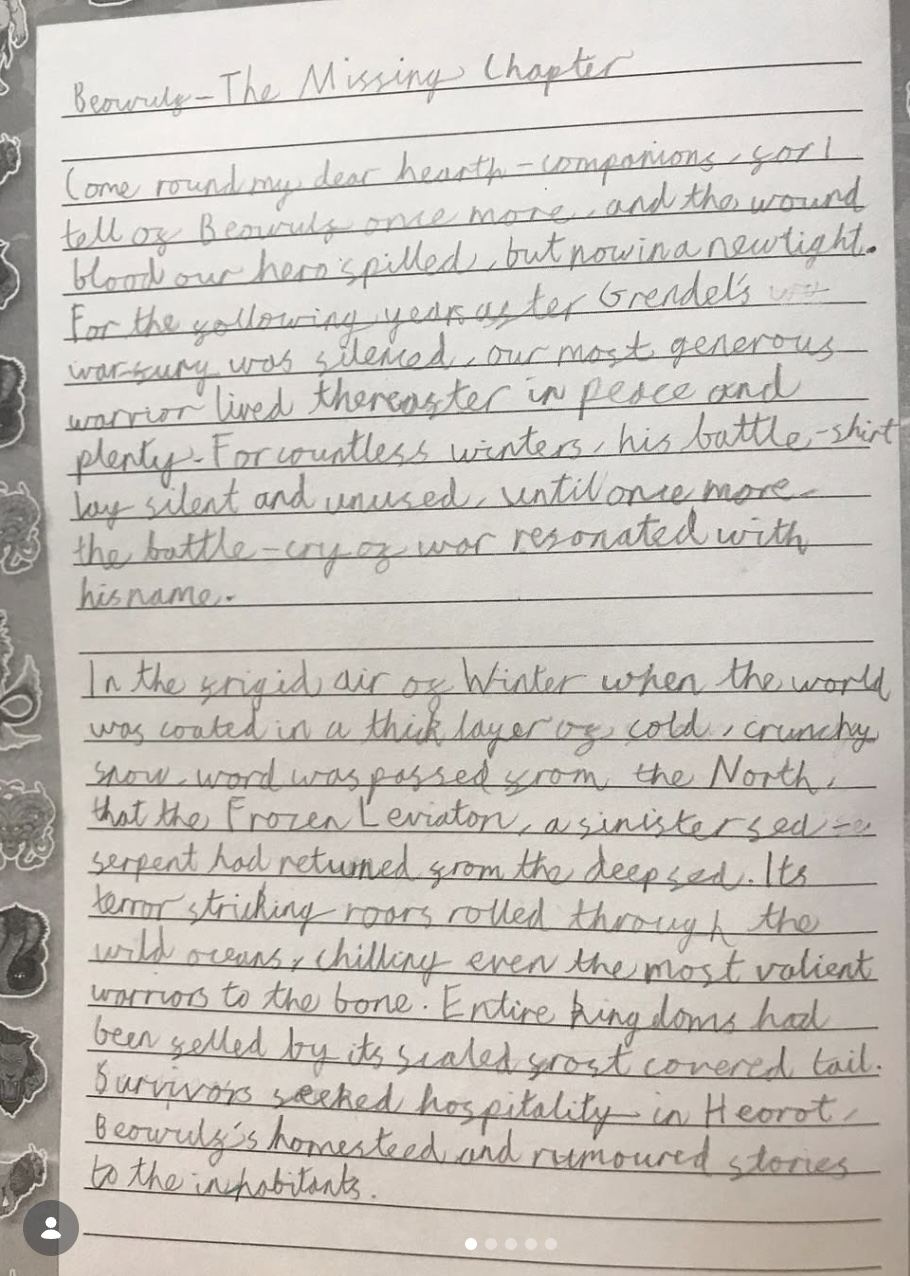 Beowulf - The Missing Chapter
Come round my dear hearth - companions, for I
tell of Beowulf once more, and the wound
blood our hero spilled, but now in a new light.
For the following years after Grendel's
war-fury was silenced, our most generous
warrior lived thereafter in peace and
plenty. For countless winters, his battle-shirt
lay silent and unused, until once more
the battle-cry of war resonated with
his name.
In the frigid air of Winter when the world
was coated in a thick layer of cold, crunchy
snow, word was passed from the North,
that the Frozen Leviaton, a sinister sea
serpent had returned from the deep sea. Its
terror striking roars rolled through the
wild oceans, chilling even the most valient
warriors to the bone. Entire kingdoms had
been felled by its scaled frost covered tail.
Survivors seeked hospitality in Heorot,
Beowulf's homesteed and rumoured stories
to the inhabitants.